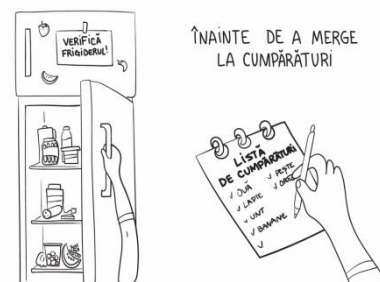 VERIFICĂ
FRIGIDERUL!
ÎNAINTE DE A MERGE
LA CUMPĂRĂTURI
LISTĂ
DE CUMPĂRĂTURI
✓ OUĂ
✓ LAPTE
✓ UNT
✓ BANANE
✓
✓ PEȘTE
✓ OREZ